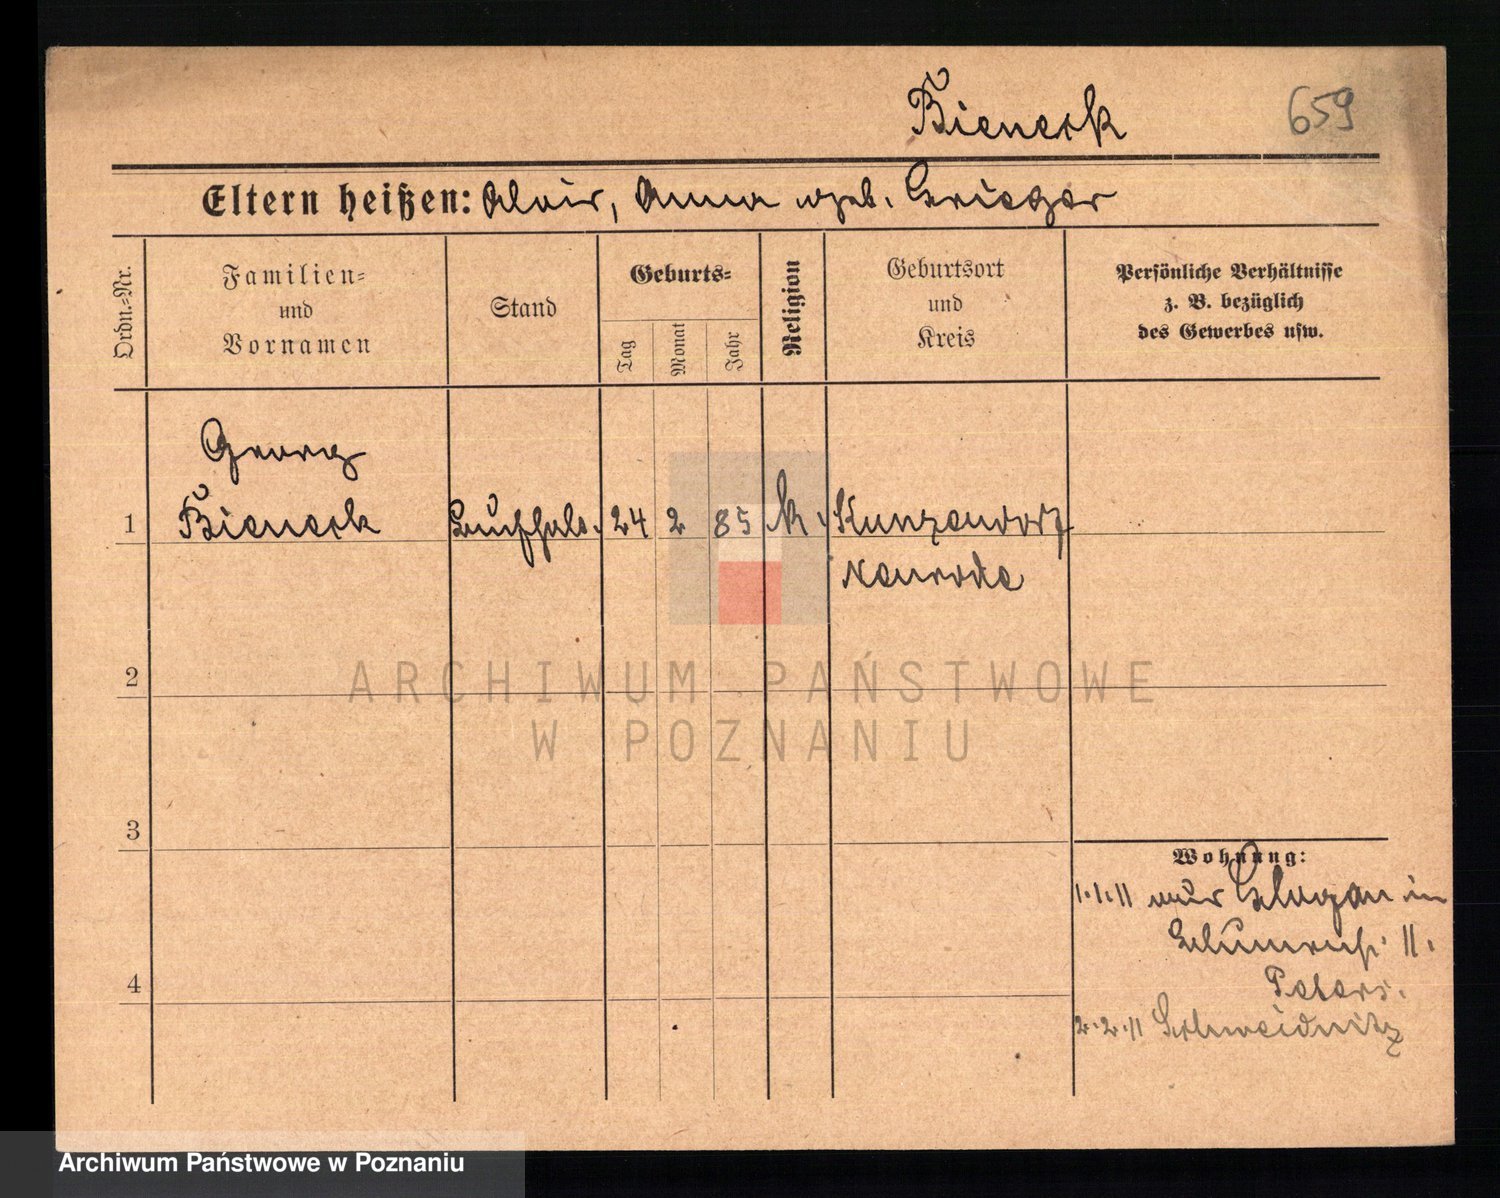 Bieneck
659
Eltern heißen: Alois, Anna geb. Krieger
Ordn.-Nr.
Familien-
und
Vornamen
Stand
Geburts-
Tag
Monat
Jahr
Religion
Geburtsort
und
Kreis
Persönliche Verhältnisse
z. B. bezüglich
des Gewerbes usw.
Georg
1 Bieneck Buchhalt. 24 2 85 k. Kunzendorf
Neurode
2
ARCHIWUM PAŃSTWOWE
W POZNANIU
3
Wohnung:
1.1.11 aus Glogau in
11.
4
Peters.
2.2.11 Schweidnitz
Archiwum Państwowe w Poznaniu